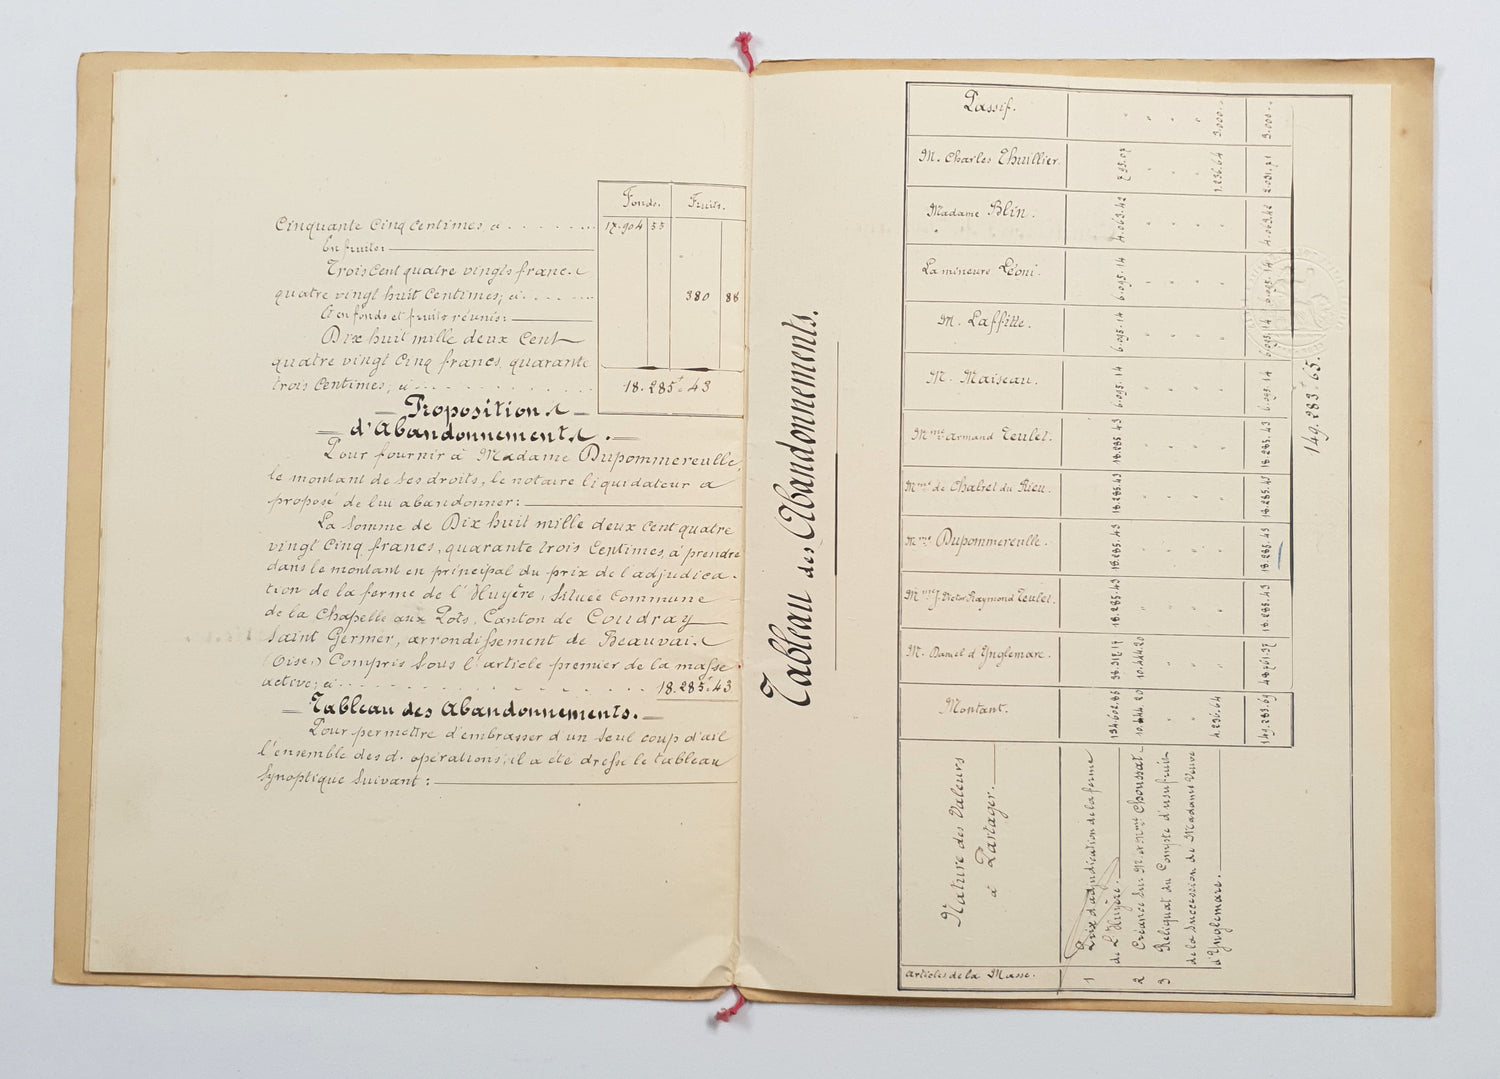 Fonds. Fruits.
Cinquante Cinq Centimes à . . . . . . . 17.904 55
En fruits:
Trois Cent quatre vingts francs
quatre vingt huit Centimes; ci . . . . . . 380 88
Et en fonds et fruits réunis:
Dix huit mille deux Cent
quatre vingt Cinq francs, quarante
trois Centimes, ci . . . . . . . . . . 18.285f.43
Propositions
d'Abandonnements.
Pour fournir à Madame Dupommereulle,
le montant de ses droits, le notaire liquidateur a
proposé de lui abandonner:
La Somme de Dix huit mille deux Cent quatre
vingt Cinq francs, quarante trois Centimes, à prendre
dans le montant en principal du prix de l'adjudica-
tion de la ferme de l'Huyère, Située Commune
de la Chapelle aux Pots, Canton de Coudray
Saint Germer, arrondissement de Beauvais
(Oise,) Compris Sous l'article premier de la masse
active; ci . . . . . . . . . . . . . . . . 18.285f.43
Tableau des Abandonnements.
Pour permettre d'embrasser d'un Seul coup d'œil
l'ensemble des d. opérations, il a été dressé le tableau
Synoptique Suivant:
Tableau des Abandonnements.
Articles de la Masse.
Nature des Valeurs
à Partager.
Montant.
M. Daniel d'Ynglemare.
Mme J. Victor Raymond Teulet.
Mme Dupommereulle.
Mme de Chalret du Rieu.
Mme Armand Teulet.
M. Maiseau.
M. Laffitte.
La mineure Léoni.
Madame Blin.
M. Charles Thuillier.
Passif.
1 Prix d'adjudication de la ferme
de L'Huyère. 134.602.85 38.317.17 18.285.43 18.285.43 18.285.43 18.285.43 6.095.14 6.095.14 6.095.14 4.063.42 795.07 "
2 Créance Sur Mr. et Mme Choussat 10.444.20 10.444.20 " " " " " " " " " "
3 Reliquat du Compte d'usufruit
de la Succession de Madame Veuve
d'Ynglemare. 4.236.64 " " " " " " " " " 1.236.64 3.000..
149.283.69 48.761.37 18.285.43 18.285.43 18.285.43 18.285.43 6.095.14 6.095.14 6.095.14 4.063.42 2.031.71 3.000..
149.283f.65.